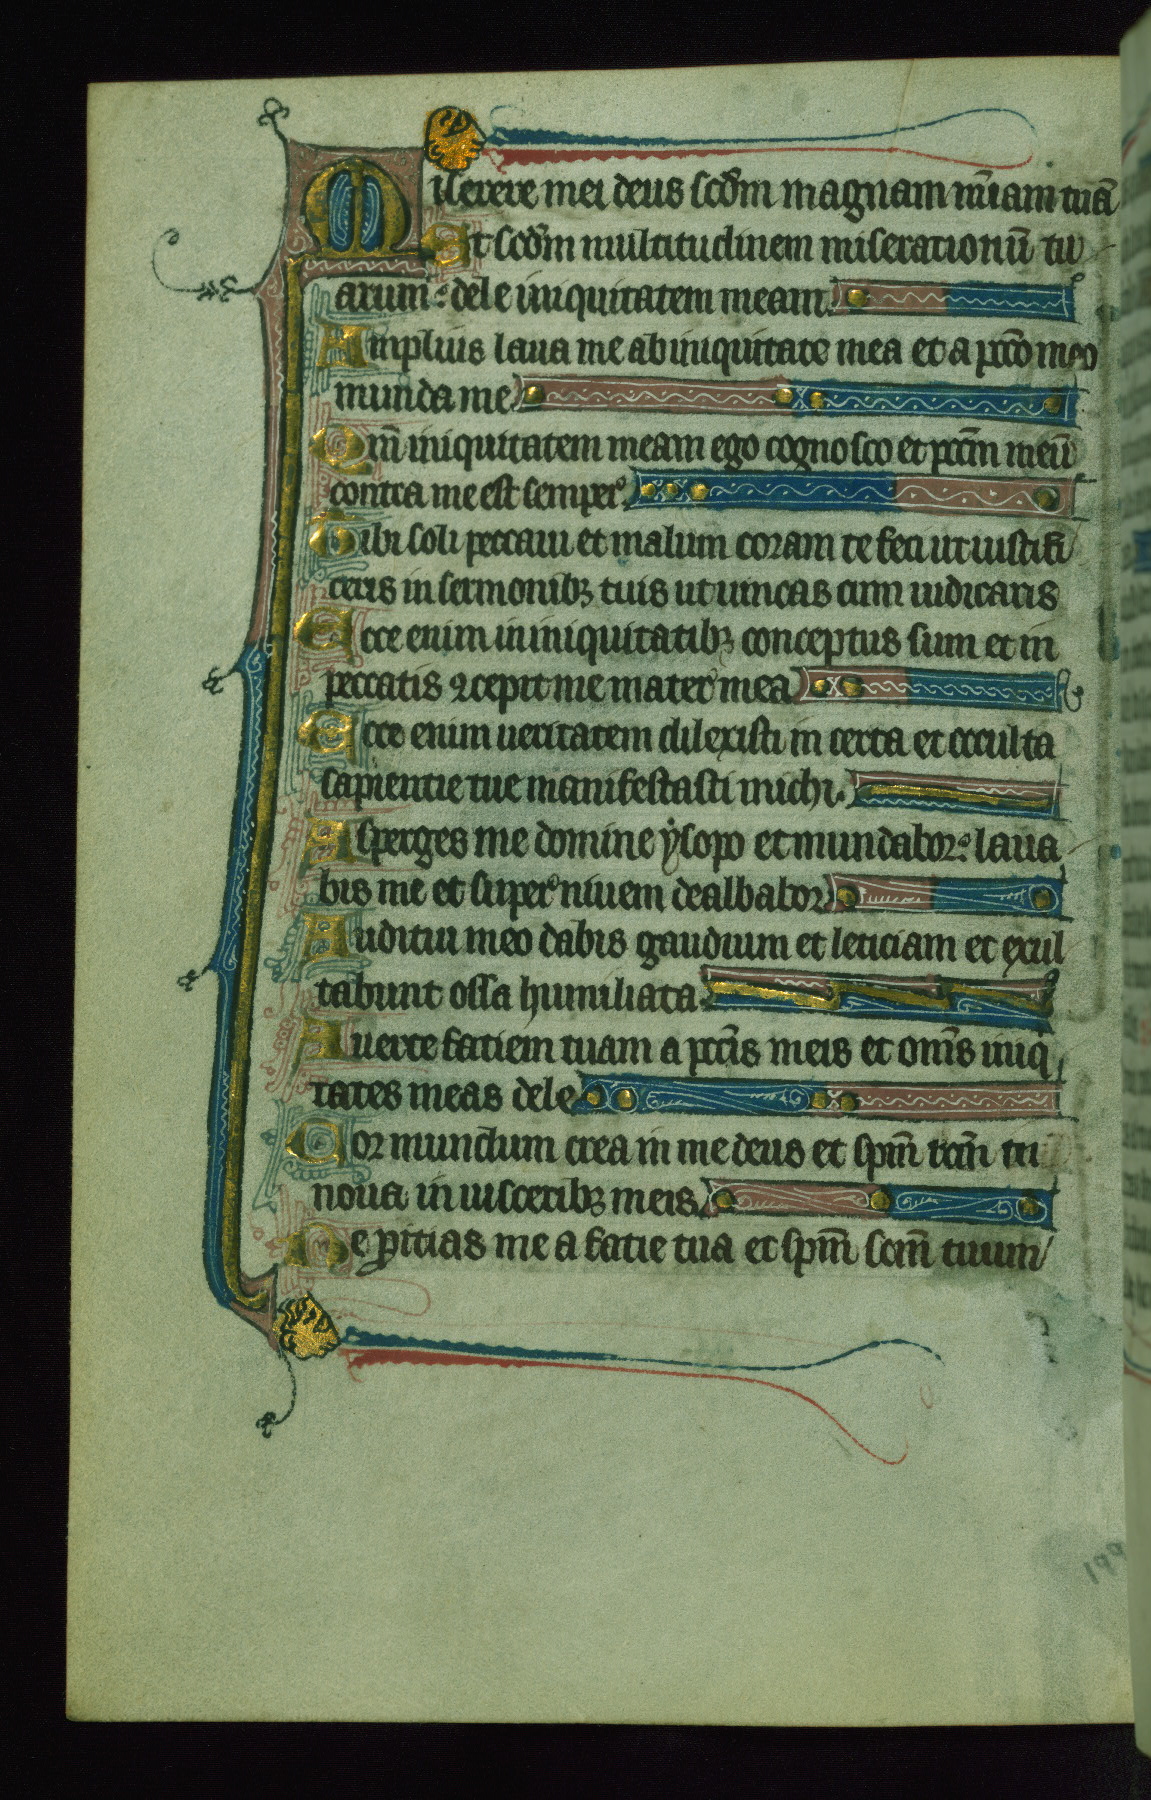 Miserere mei deus scd̄m magnam mīam tuā
Et scd̄m multitudinem miserationū tu
arum: dele iniquitatem meam.
Amplius laua me ab iniquitate mea et a pctō meo
munda me
Qm̄ iniquitatem meam ego cognosco et pctm̄ meū
contra me est semper
Tibi soli peccaui et malum coram te feci ut iustifi
ceris in sermonibꝫ tuis ut uincas cum iudicaris
Ecce enim in iniquitatibꝫ conceptus sum et in
peccatis ꝯcepit me mater mea
Ecce enim ueritatem dilexisti in certa et occulta
sapientie tue manifestasti michi.
Asperges me domine ẏsopo et mundabor: laua
bis me et super niuem dealbabor
Auditui meo dabis gaudium et leticiam et exul
tabunt ossa humiliata
Auerte fatiem tuam a pctīs meis et omīs iniq
tates meas dele
Cor mundum crea in me deus et spm̄ rcm̄ in
noua in uisceribꝫ meis
Ne ꝓitias me a fatie tua et spm̄ scm̄ tuum